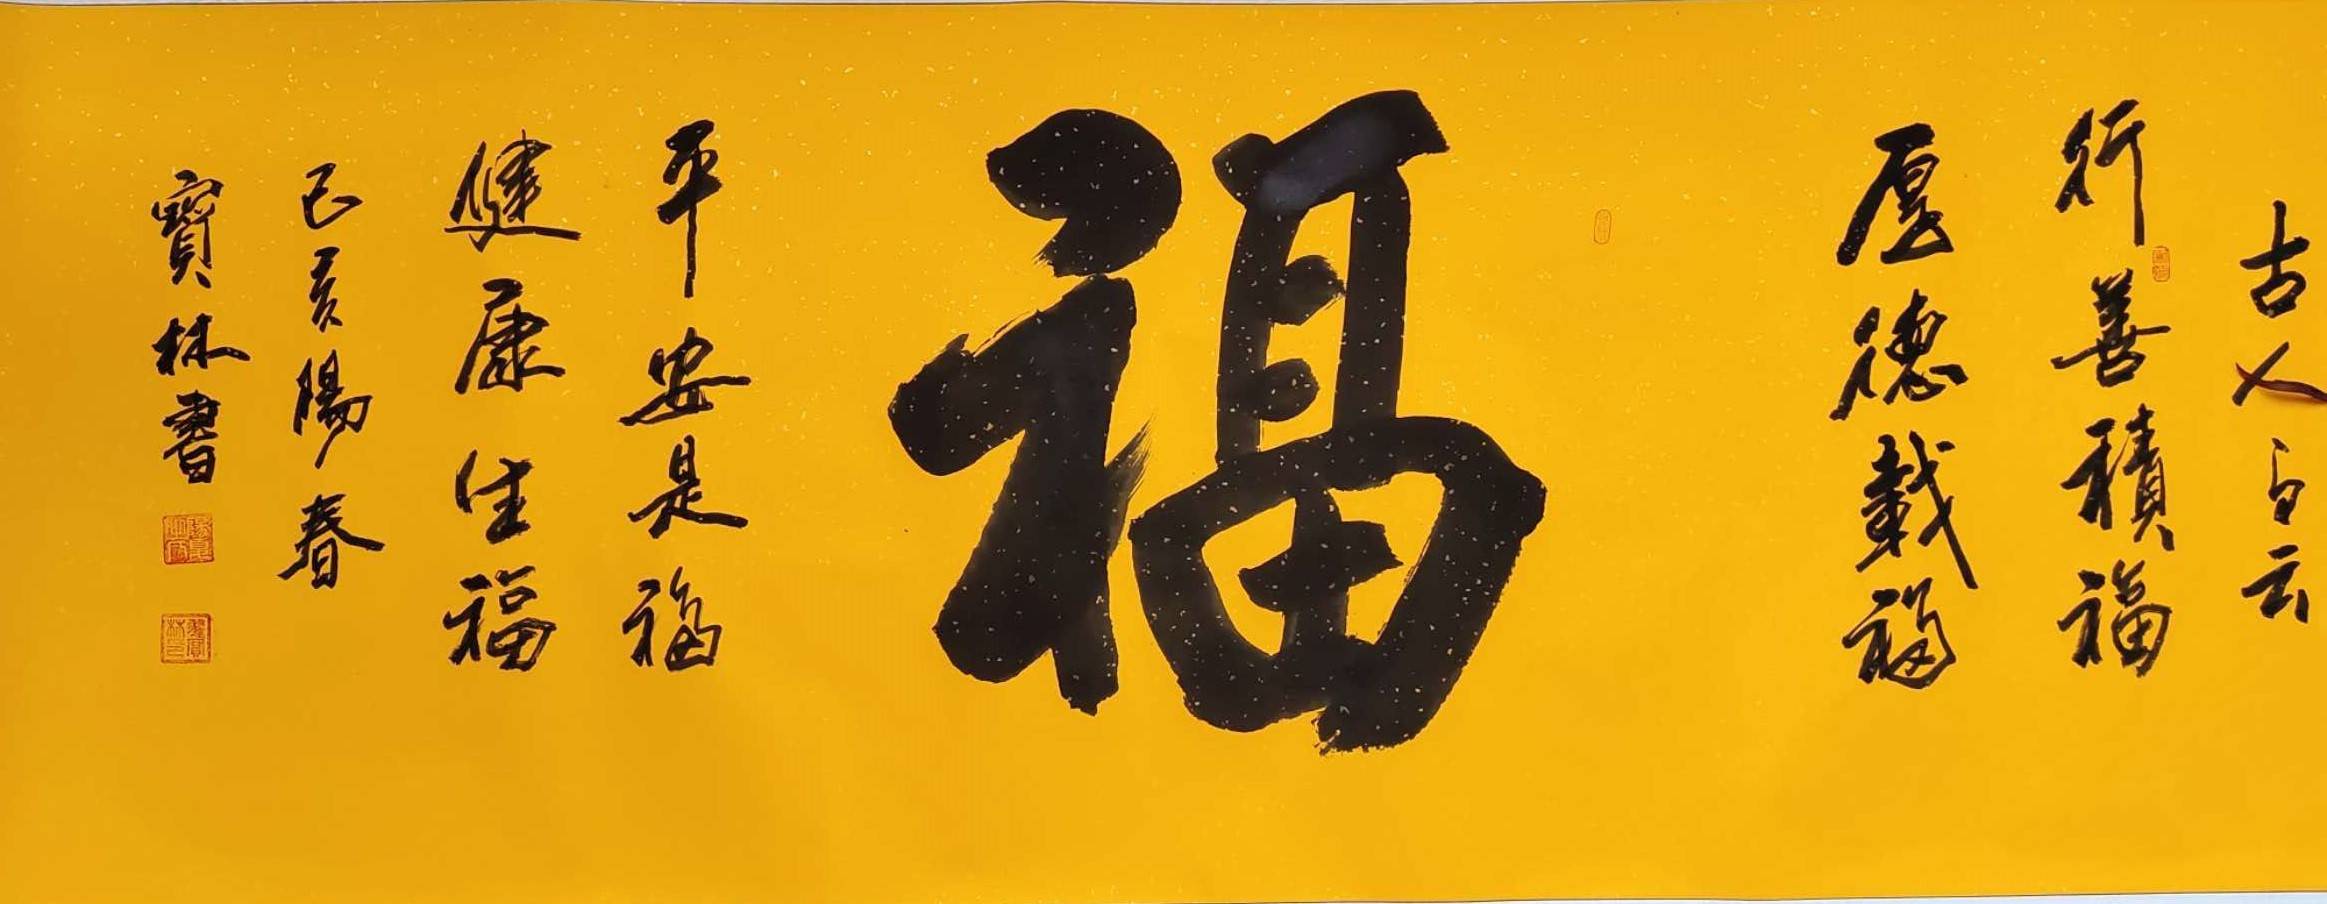 古人云
行善積福
厚德載福
福
平安是福
健康福
己亥陽春
寶林書